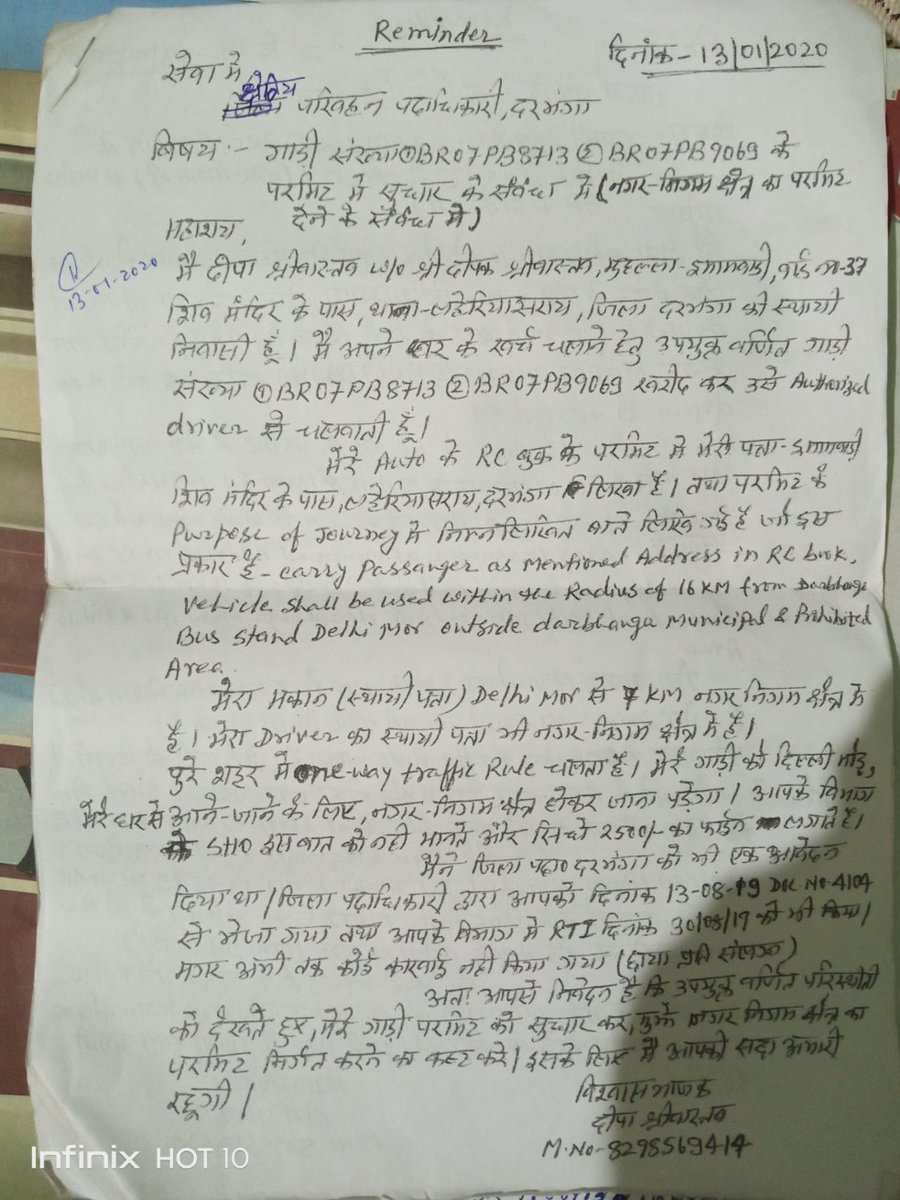 Reminder
दिनांक - 13/01/2020
सेवा मे
क्षेत्रिय परिवहन पदाधिकारी, दरभंगा
विषय :- गाड़ी संख्या ① BR07PB8713 ② BR07PB9069 के
परमिट मे सुधार के संबंध मे (नगर-निगम क्षेत्र का परमिट
देने के संबंध मे)
महाशय,
1
13-01-2020
मै दीपा श्रीवास्तव w/o श्री दीपक श्रीवास्तव, मुहल्ला- वार्ड न०-37
शिव मंदिर के पास, थाना-लहेरियासराय, जिला दरभंगा की स्थायी
निवासी हूँ। मै अपने घर के खर्च चलाने हेतु उपयुक्त वर्णित गाड़ी
संख्या ① BR07PB8713 ② BR07PB9069 खरीद कर उसे Authorized
driver से चलवाती हूँ।
मेरे Auto के RC बुक के परमिट मे मेरी पता-
शिव मंदिर के पास, लहेरियासराय, दरभंगा लिखा है। तथा परमिट के
Purpose of Journey मे निम्नलिखित बाते लिखि गई है जो इस
प्रकार है - carry Passanger as Mentioned Address in RC book.
Vehicle shall be used within the Radius of 16 KM from Darbhanga
Bus Stand Delhi Mor outside darbhanga Municipal & Prohibited
Area.
मेरा मकान (स्थायी पता) Delhi Mor से 7 KM नगर निगम क्षेत्र मे
है। मेरा Driver का स्थायी पता भी नगर-निगम क्षेत्र मे है।
पुरे शहर मे one-way traffic Rule चलता है। मेरे गाड़ी को दिल्ली मोड़,
मेरे घर से आने-जाने के लिए, नगर-निगम क्षेत्र होकर जाना पड़ेगा। आपके विभाग
SHO इस बात को नही मानते और सिधे 2500/- का फाईन लगाते है।
मैने जिला पदा० दरभंगा को भी एक आवेदन
दिया था। जिला पदाधिकारी द्वारा आपको दिनांक 13-08-19 DOC No-4104
से भेजा गया तथा आपके विभाग मे RTI दिनांक 30/08/19 को भी किया।
मगर अभी तक कोई कारवाई नही किया गया (छाया प्रति संलग्न)
अतः आपसे निवेदन है कि उपयुक्त वर्णित परिस्थीती
को देखते हुए, मेरे गाड़ी परमिट को सुधार कर, मुझे नगर निगम क्षेत्र का
परमिट निर्गत करने का कष्ट करे। इसके लिए मै आपकी सदा अभारी
रहूगी।
विश्वासभाजक
दीपा श्रीवास्तव
M.No-8298569414
Infinix HOT 10